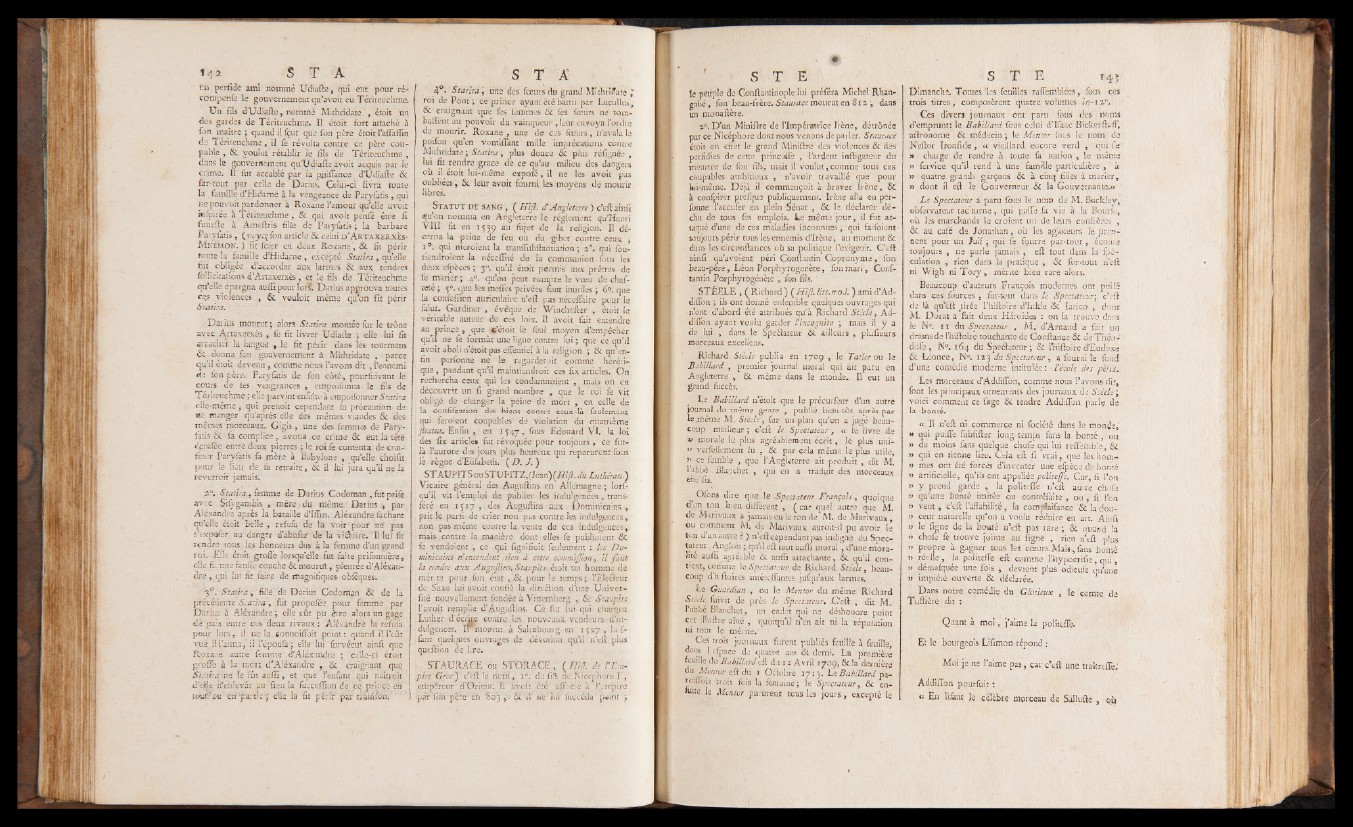 142 S T A
un perfide ami nommé Udiaste, qui eut pour ré-
compense le gouvernement qu'avoit eu Tériteuchme.
Un fils d'Udiaste, nommé Mithridate, étoit un
des gardes de Tériteuchme. Il étoit fort attaché à
son maître ; quand il sçut que son père étoit l'assassin
de Tériteuchme, il se révolta contre ce père cou-
pable, & voulut rétablir le fils de Tériteuchme,
dans le gouvernement qu'Udiaste avoit acquis par le
crime. Il fut accablé par la puissance d'Udiaste &
sur-tout par celle de Darius. Celui-ci livra toute
la famille d'Hidarne à la vengeance de Parysatis, qui
ne pouvoit pardonner à Roxane l'amour qu'elle avoit
inspirée à Tériteuchme, & qui avoit pensé être si
funeste à Amestris fille de Parysatis ; la barbare
Parysatis, (voyez son article & celui d'ARTAXERXÈS-
MNÉMON.) fit scier en deux Roxane, & fit périr
toute la famille d'Hidarne, excepté Statira, qu'elle
fut obligée d'accorder aux larmes & aux tendres
sollicitations d'Artaxerxès, et le fils de Tériteuchme
qu'elle épargna aussi pour lors. Darius approuva toutes
ces violences, & vouloit même qu'on fît périr
Statira.
Darius mourut ; alors Statira montée sur le trône
avec Artaxerxès, se fit livrer Udiaste ; elle lui fit
arracher la langue, le fit périr dans les tourmens
& donna son gouvernement à Mithridate, parce
qu'il étoit devenu, comme nous l'avons dit, l'ennemi
de son père. Parysatis de son côté, poursuivant le
cours de ses vengeances, empoisonna le fils de
Tériteuchme ; elle parvint ensuite à empoisonner Statira
elle-même, qui prenoit cependant la précaution de
ne manger qu'après elle des mêmes viandes & des
mêmes morceaux. Gigis, une des femmes de Pary-
satis & sa complice, avoua ce crime & eut la tête
écrasée entre deux pierres ; le roi se contenta de con-
finer Parysatis sa mère à Babylone, qu'elle choisit
pour le lieu de sa retraite, & il lui jura qu'il ne la
reverroit jamais.
2°. Statira, femme de Darius Codoman, fut prise
avec Sisygambis, mère du même Darius, par
Aléxandre après la bataille d'Issus. Aléxandre sachant
qu'elle étoit belle, refusa de la voir pour ne pas
s'exposer au danger d'abuser de la victoire. Il lui fit
rendre tous les honneurs dus à la femme d'un grand
roi. Elle étoit grosse lorsqu'elle fut faite prisonnière,
elle fit une fausse couche & mourut, pleurée d'Aléxan-
dre, qui lui fit faire de magnifiques obsèques.
3°. Statira, fille de Darius Codoman & de la
précédente Statira, fut proposée pour femme par
Darius à Aléxandre ; elle eût pu être alors un gage
de paix entre ces deux rivaux : Aléxandre la refusa
pour lors, il ne la connoissoit point : quand il l'eût
vue il l'aima, il l'épousa ; elle lui survécut ainsi que
Roxane autre femme d'Aléxandre ; celle-ci étoit
grosse à la mort d'Aléxandre, & craignant que
Statira ne le fût aussi, et que l'enfant qui naîtroit
d'elle n'enlevât au sien la succession de ce prince en
tout ou en partie ; elle la fit périr par trahison.
S T A
4°. Statira, une des sœurs du grand Mithridate,
roi de Pont ; ce prince ayant été battu par Lucullus,
& craignant que ses femmes & ses sœurs ne tom-
bassent au pouvoir du vainqueur, leur envoya l'ordre
de mourir. Roxane, une de ces sœurs, n'avala le
poison qu'en vomissant mille imprécations contre
Mithridate ; Statira, plus douce & plus résignée,
lui fit rendre grace de ce qu'au milieu des dangers
où il étoit lui-même exposé, il ne les avoit pas
oubliées, & leur avoit fourni les moyens de mourir
libres.
STATUT DE SANG, (Hist. d'Angleterre) c'est ainsi
qu'on nomma en Angleterre le réglement qu'Henri
VIII fit en 1539 au sujet de la religion. Il dé-
cerna la peine de feu ou du gibet contre ceux,
1°. qui nieroient la transsubstantiation ; 2°. qui sou-
tiendroient la nécessité de la communion sous les
deux espèces ; 3°. qu'il étoit permis aux prêtres de
se marier ; 4°. qu'on peut rompre le vœu de chas-
teté ; 5°. que les messes privées sont inutiles ; 6°. que
la confession auriculaire n'est pas nécessaire pour le
salut. Gardiner, évêque de Winchester, étoit le
véritable auteur de ces loix. Il avoit fait entendre
au prince, que c'étoit le seul moyen d'empêcher
qu'il ne se formât une ligue contre lui ; que ce qu'il
avoit aboli n'étoit pas essentiel à la religion ; & qu'en-
fin personne ne le regarderoit comme héréti-
que, pandant qu'il maintiendroit ces six articles. On
rechercha ceux qui les condamnoient, mais on en
découvrit un si grand nombre, que le roi se vit
obligé de changer la peine de mort, en celle de
la confiscation des biens contre ceux-là seulement
qui seroient coupables de violation du quatrième
statut. Enfin, en 1547, sous Edouard VI, la loi
des six articles fut révoquée pour toujours, ce fut-
là l'aurore des jours plus heureux qui reparurent sous
le règne d'Elisabeth. (D. J.)
STAUPITS ou STUPITZ, (Jean) (Hist. du Luthéran.)
Vicaire général des Augustins en Allemagne ; lors-
qu'il vit l'emploi de publier les indulgences, trans-
féré en 1517, des Augustins aux Dominicains,
prit le parti de crier non pas contre les indulgences,
non pas même contre la vente de ces indulgences,
mais contre la manière dont elles se publioient &
se vendoient, ce qui signifioit seulement : les Do-
minicains n'entendent rien à cette commission, il faut
la rendre aux Augustins. Staupits étoit un homme de
mérite pour son état, & pour le temps ; l'Electeur
de Saxe lui avoit confié la direction d'une Univer-
sité nouvellement fondée à Vittemberg, & Staupits
l'avoit remplie d'Augustins. Ce fut lui qui chargea
Luther d'écrire contre les nouveaux vendeurs d'in-
dulgences. Il mourut à Saltzbourg en 1527, lais-
sant quelques ouvrages de dévotion qu'il n'est plus
question de lire.
STAURACE ou STORACE, (Hist. de l'Em-
pire Grec) c'est le nom, 1°. du fils de Nicephore I,
empereur d'Orient. Il avoit été associé à l'empire
par son père en 803, & il ne lui succéda point ;
S T E
le peuple de Constantinople lui préféra Michel Rhan-
gabé, son beau-frère. Staurace mourut en 812, dans
un monastère.
2°. D'un Ministre de l'Impératrice Irène, détrônée
par ce Nicéphore dont nous venons de parler. Staurace
étoit en effet le grand Ministre des violences & des
perfidies de cette princesse, l'ardent instigateur du
meurtre de son fils, mais il voulut, comme tous ces
coupables ambitieux, n'avoir travaillé que pour
lui-même. Déjà il commençoit à braver Irène, &
à conspirer presque publiquement. Irène alla en per-
sonne l'accuser en plein Sénat, & le déclarer dé-
chu de tous ses emplois. Le même jour, il fut at-
taqué d'une de ces maladies inconnues, qui faisoient
toujours périr tous les ennemis d'Irène, au moment &
dans les circonstances où sa politique l'exigeoit. C'est
ainsi qu'avoient péri Constantin Copronyme, son
beau-père, Léon Porphyrogenète, son mari, Cons-
tantin Porphyrogénète, son fils.
STÉELE, (Richard) (Hist. litt. mod.) ami d'Ad-
disson ; ils ont donné ensemble quelques ouvrages qui
n'ont d'abord été attribués qu'à Richard Stéele, Ad-
disson ayant voulu garder l'incognito ; mais il y a
de lui, dans le Spectateur & ailleurs, plusieurs
morceaux excellens.
Richard Stéele publia en 1709, le Tatler ou le
Babillard, premier journal moral qui ait paru en
Angleterre, & même dans le monde. Il eut un
grand succès.
Le Babillard n'étoit que le précurseur d'un autre
journal du même genre, publié bien-tôt après par
le même M. Stéele, sur un plan qu'on a jugé beau-
coup meilleur ; c'est le Spectateur, « le livre de
» morale le plus agréablement écrit, le plus uni-
» versellement lu, & par cela même le plus utile,
» ce semble, que l'Angleterre ait produit, dit M.
l'abbé Blanchet, qui en a traduit des morceaux
choisis.
Osons dire que le Spectateur François, quoique
d'un ton bien différent, (car quel autre que M.
de Marivaux a jamais eu le ton de M. de Marivaux,
ou comment M. de Marivaux auroit-il pu avoir le
ton d'un autre ?) n'est cependant pas indigne du Spec-
tateur Anglois ; qu'il est tout aussi moral, d'une mora-
lité aussi agréable & aussi attachante, & qu'il con-
tient, comme le Spectateur de Richard Stéele, beau-
coup d'histoires intéressantes jusqu'aux larmes.
Le Guardian, ou le Mentor du même Richard
Stéele suivit de près le Spectateur. C'est, dit M.
l'abbé Blanchet, un cadet qui ne déshonore point
cet illustre aîné, quoiqu'il n'en ait ni la réputation
ni tout le mérite.
Ces trois journaux furent publiés feuille à feuille,
dans l'espace de quatre ans & demi. La première
feuille du Babillard est du 12 Avril 1709, & la dernière
du Mentor est du 1 Octobre 1713. Le Babillard pa-
roissoit trois fois la semaine ; le Spectateur, & en-
suite le Mentor parurent tous les jours, excepté le
S T E 143
Dimanche. Toutes les feuilles rassemblées, sous ces
trois titres, composèrent quatre volumes in-12°.
Ces divers journaux ont paru sous des noms
d'emprunt le Babillard sous celui d'Isaac Bickerstaff,
astronome & médecin ; le Mentor sous le nom de
Nestor Ironside, « vieillard encore verd, qui se
» charge de rendre à toute sa nation, le même
» service qu'il rend à une famille particulière, à
» quatre grands garçons & à cinq filles à marier,
» dont il est le Gouverneur & la Gouvernante.»
Le Spectateur a paru sous le nom de M. Buckley,
observateur taciturne, qui passe sa vie à la Bourse,
où les marchands le croient un de leurs confrères,
& au café de Jonathan, où les agioteurs le pren-
nent pour un Juif ; qui se fourre par-tout, écoute
toujours, ne parle jamais, est tout dans la spé-
culation, rien dans la pratique, & sur-tout n'est
ni Wigh ni Tory, mérite bien rare alors.
Beaucoup d'auteurs François modernes ont puisé
dans ces sources, sur-tout dans le Spectateur; c'est
de là qu'est tirée l'histoire d'Inkle & Iarico, dont
M. Dorat a fait deux Héroïdes : on la trouve dans
le N°. 11 du Spectateur, M. d'Arnaud a fait un
drame de l'histoire touchante de Constance & de Théo-
dose, N°. 164 du Spectateur ; & l'histoire d'Eudoxe
& Léonce, N°. 123 du Spectateur, a fourni le fond
d'une comédie moderne intitulée : l'école des pères.
Les morceaux d'Addisson, comme nous l'avons dit,
sont les principaux ornemens des journaux de Stéele ;
voici comment ce sage & tendre Addisson parle de
la bonté.
« Il n'est ni commerce ni société dans le monde,
» qui puisse subsister long-temps sans la bonté, ou
» du moins sans quelque chose qui lui ressemble, &
» qui en tienne lieu. Cela est si vrai, que les hom-
» mes ont été forcés d'inventer une espèce de bonté
» artificielle, qu'ils ont appellée politesse. Car, si l'on
» y prend garde, la politesse n'est autre chose
» qu'une bonté imitée ou contrefaite, ou, si l'on
» veut, c'est l'affabilité, la complaisance & la dou-
» ceur naturelle qu'on a voulu réduire en art. Ainsi
» le signe de la bonté n'est pas rare ; & quand la
» chose se trouve jointe au signe, rien n'est plus
» propre à gagner tous les cœurs. Mais, sans bonté
» réelle, la politesse est comme l'hypocrisie, qui,
» démasquée une fois, devient plus odieuse qu'une
» impiété ouverte & déclarée.
Dans notre comédie du Glorieux, le comte de
Tuffière dit :
Quant à moi, j'aime la politesse.
Et le bourgeois Lisimon répond :
Moi je ne l'aime pas, car c'est une traîtresse.
Addisson poursuit :
« En lisant le célèbre morceau de Salluste, où